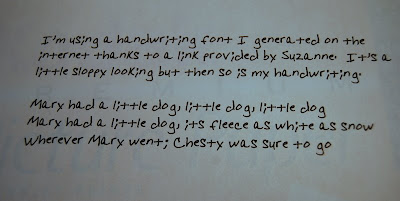 I'm using a handwriting font I generated on the
internet thanks to a link provided by Suzanne. It's a
little sloppy looking but then so is my handwriting.
Mary had a little dog, little dog, little dog
Mary had a little dog, its fleece as white as snow
Wherever Mary went; Chesty was sure to go